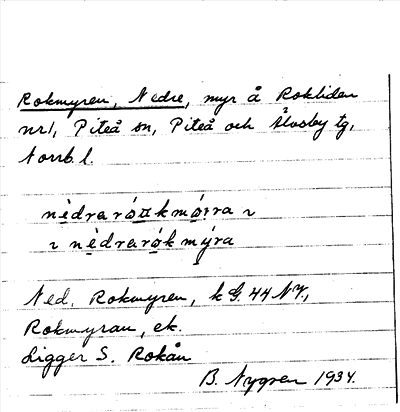 Rokmyren, Nedre, myr å Rokliden
nr1, Piteå sn, Piteå och Älvsby tg,
Norrb. l.
nèdraróøkmóırra ı
ı nèdrarókmýra
Ned. Rokmyren, k G. 44 NV.,
Rokmyran, ek.
Ligger S. Rokån
B. Nygren 1934.